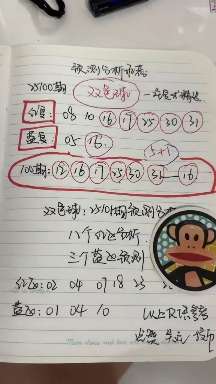 预测分析彩票
25100期 双色球
红运: 08 10 16 17 25 30 31
蓝运: 05 16.
5+1
100期: 12 16 17 25 30 31 — 16
双色球: 25101期预测分析
八个红运分析
三个蓝运预测
红运: 02 04 07 18 23
蓝运: 01 04 10 以上仅供参考
点赞 关注